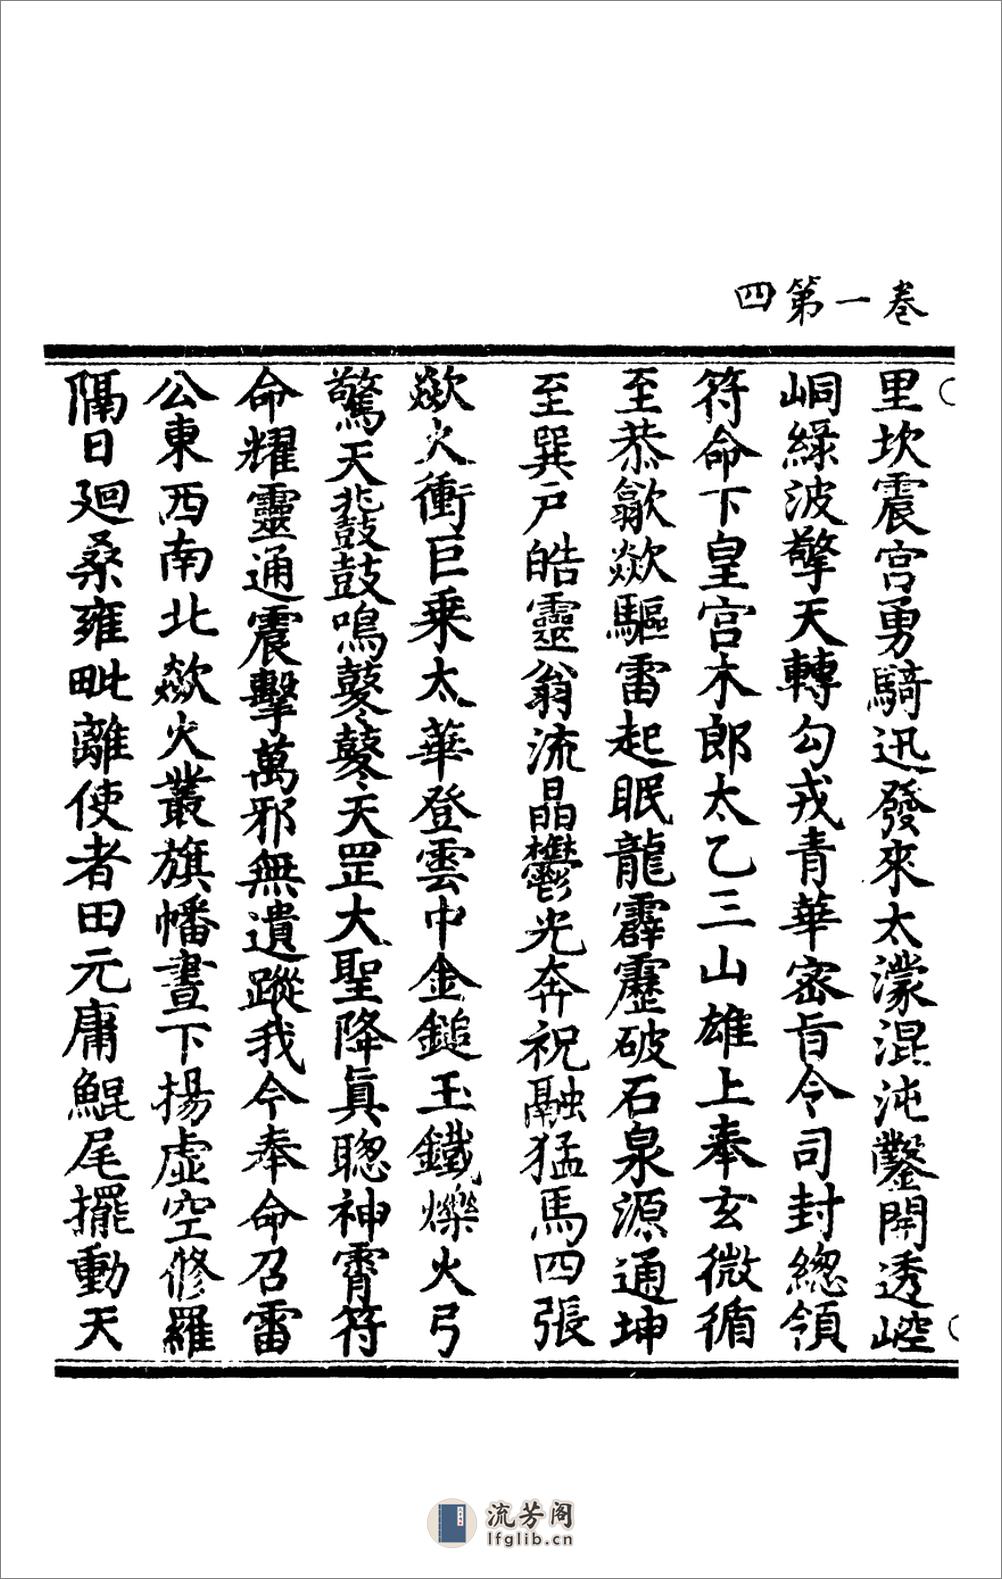 卷一第四
里坎震宫勇騎迅發來太濛混沌鑿開透崆
峒綠波擎天轉勾戎青華密旨令司封總領
符命下皇宫木郎太乙三山雄上奉玄微循
至恭歙欻驅雷起眠龍霹靂破石泉源通坤
至巽户皓靈翁流晶鬱光奔祝融猛馬四張
歘火衝巨乗太華登雲中金鎚玉鐵爍火弓
驚天兆鼓鼓鳴鼕鼕天罡大聖降眞聰神霄符
命耀靈通震擊萬邪無遺蹤我今奉命召雷
公東西南北歘火叢旗幡晝下揚虛空修羅
隔日廻桑雍毗離使者田元庸鯤尾擺動天
流芳阁
lfglib.cn